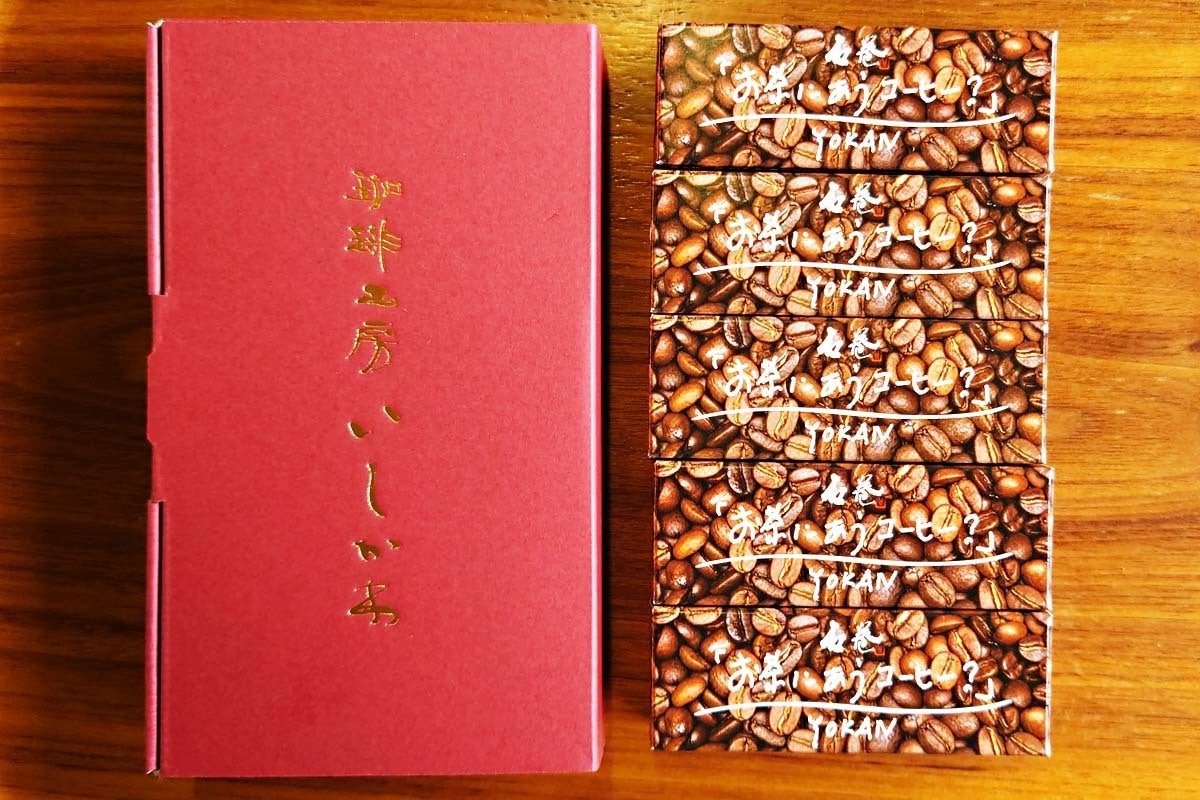 珈琲工房いしかわ
石巻
「お茶にあうコーヒー?」
YOKAN
石巻
「お茶にあうコーヒー?」
YOKAN
石巻
「お茶にあうコーヒー?」
YOKAN
石巻
「お茶にあうコーヒー?」
YOKAN
石巻
「お茶にあうコーヒー?」
YOKAN